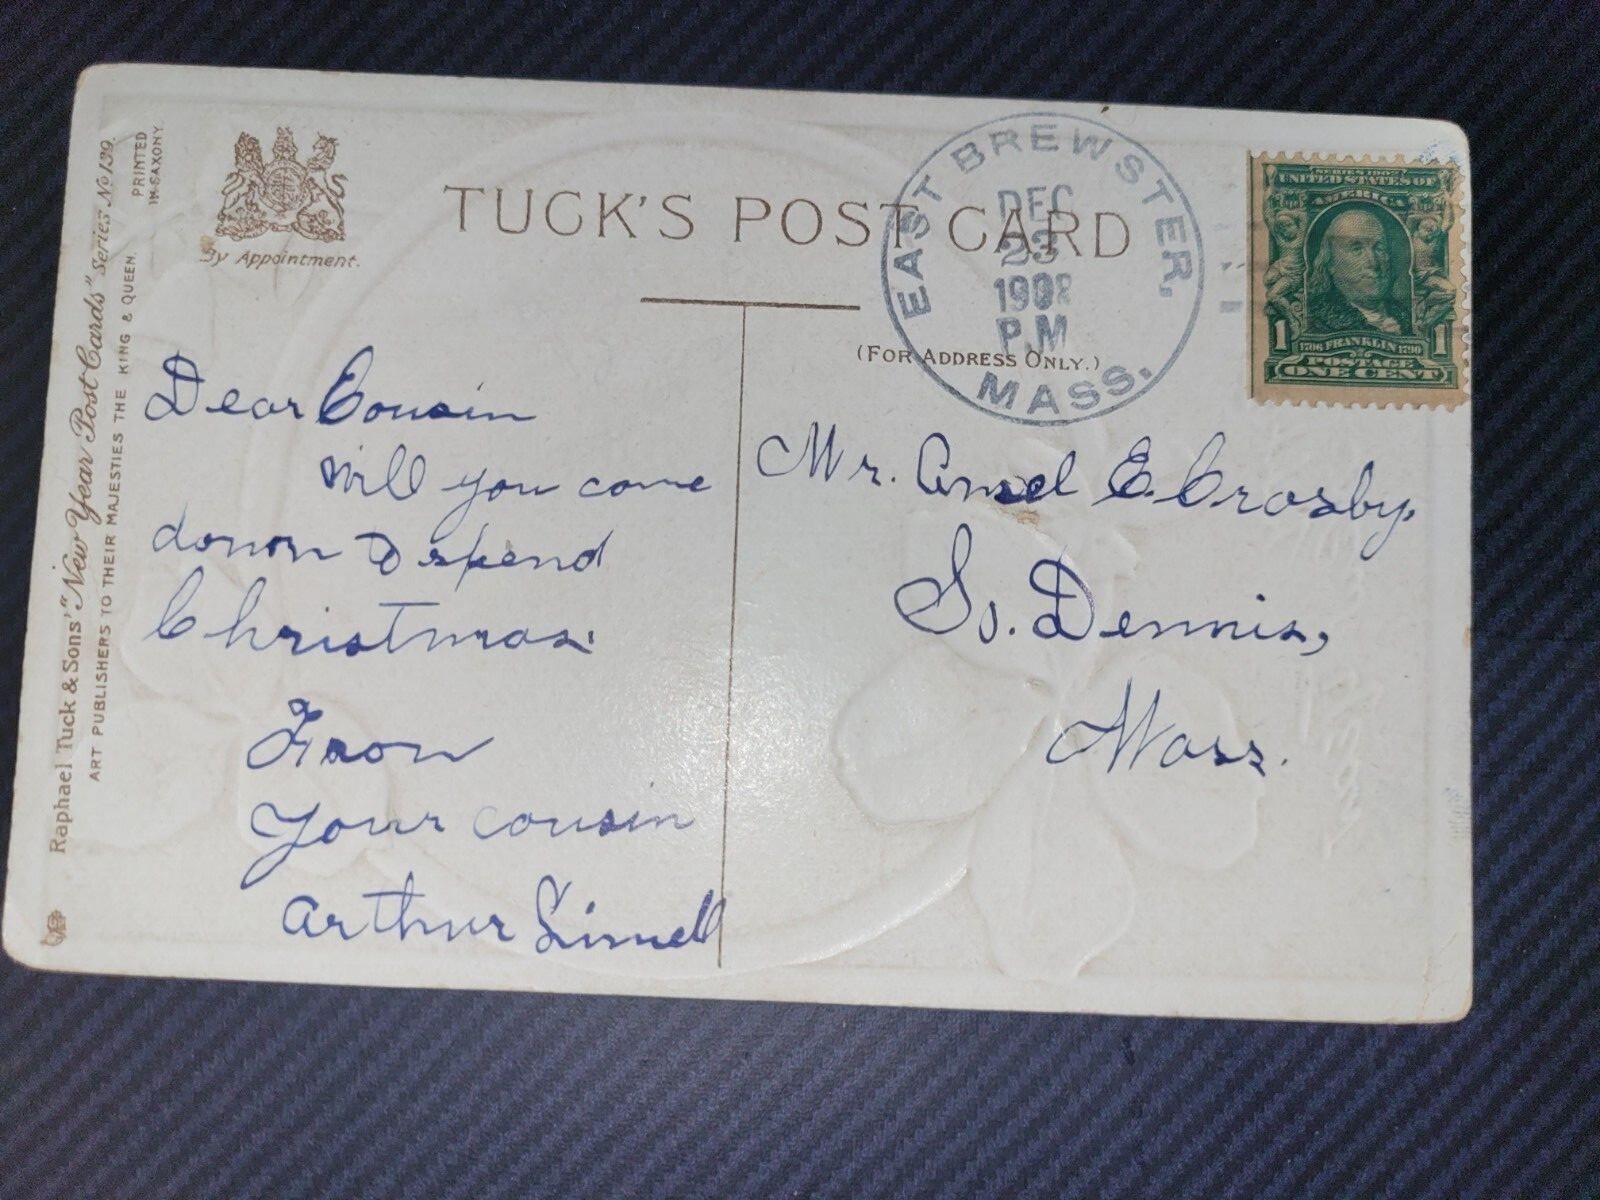 Raphael Tuck & Sons' "New Year Post Cards" Series No 139.
ART PUBLISHERS TO THEIR MAJESTIES THE KING & QUEEN.
PRINTED
IN SAXONY.
By Appointment.
TUCK'S POST CARD
(FOR ADDRESS ONLY.)
EAST BREWSTER,
DEC
23
1908
P.M
MASS.
SERIES 1902
UNITED STATES OF
AMERICA
1 1706 FRANKLIN 1790 1
POSTAGE
ONE CENT
Dear Cousin
will you come
down to spend
Christmas.
From
Your cousin
Arthur Linnell
Mr. Amsel E. Crosby,
So. Dennis,
Mass.